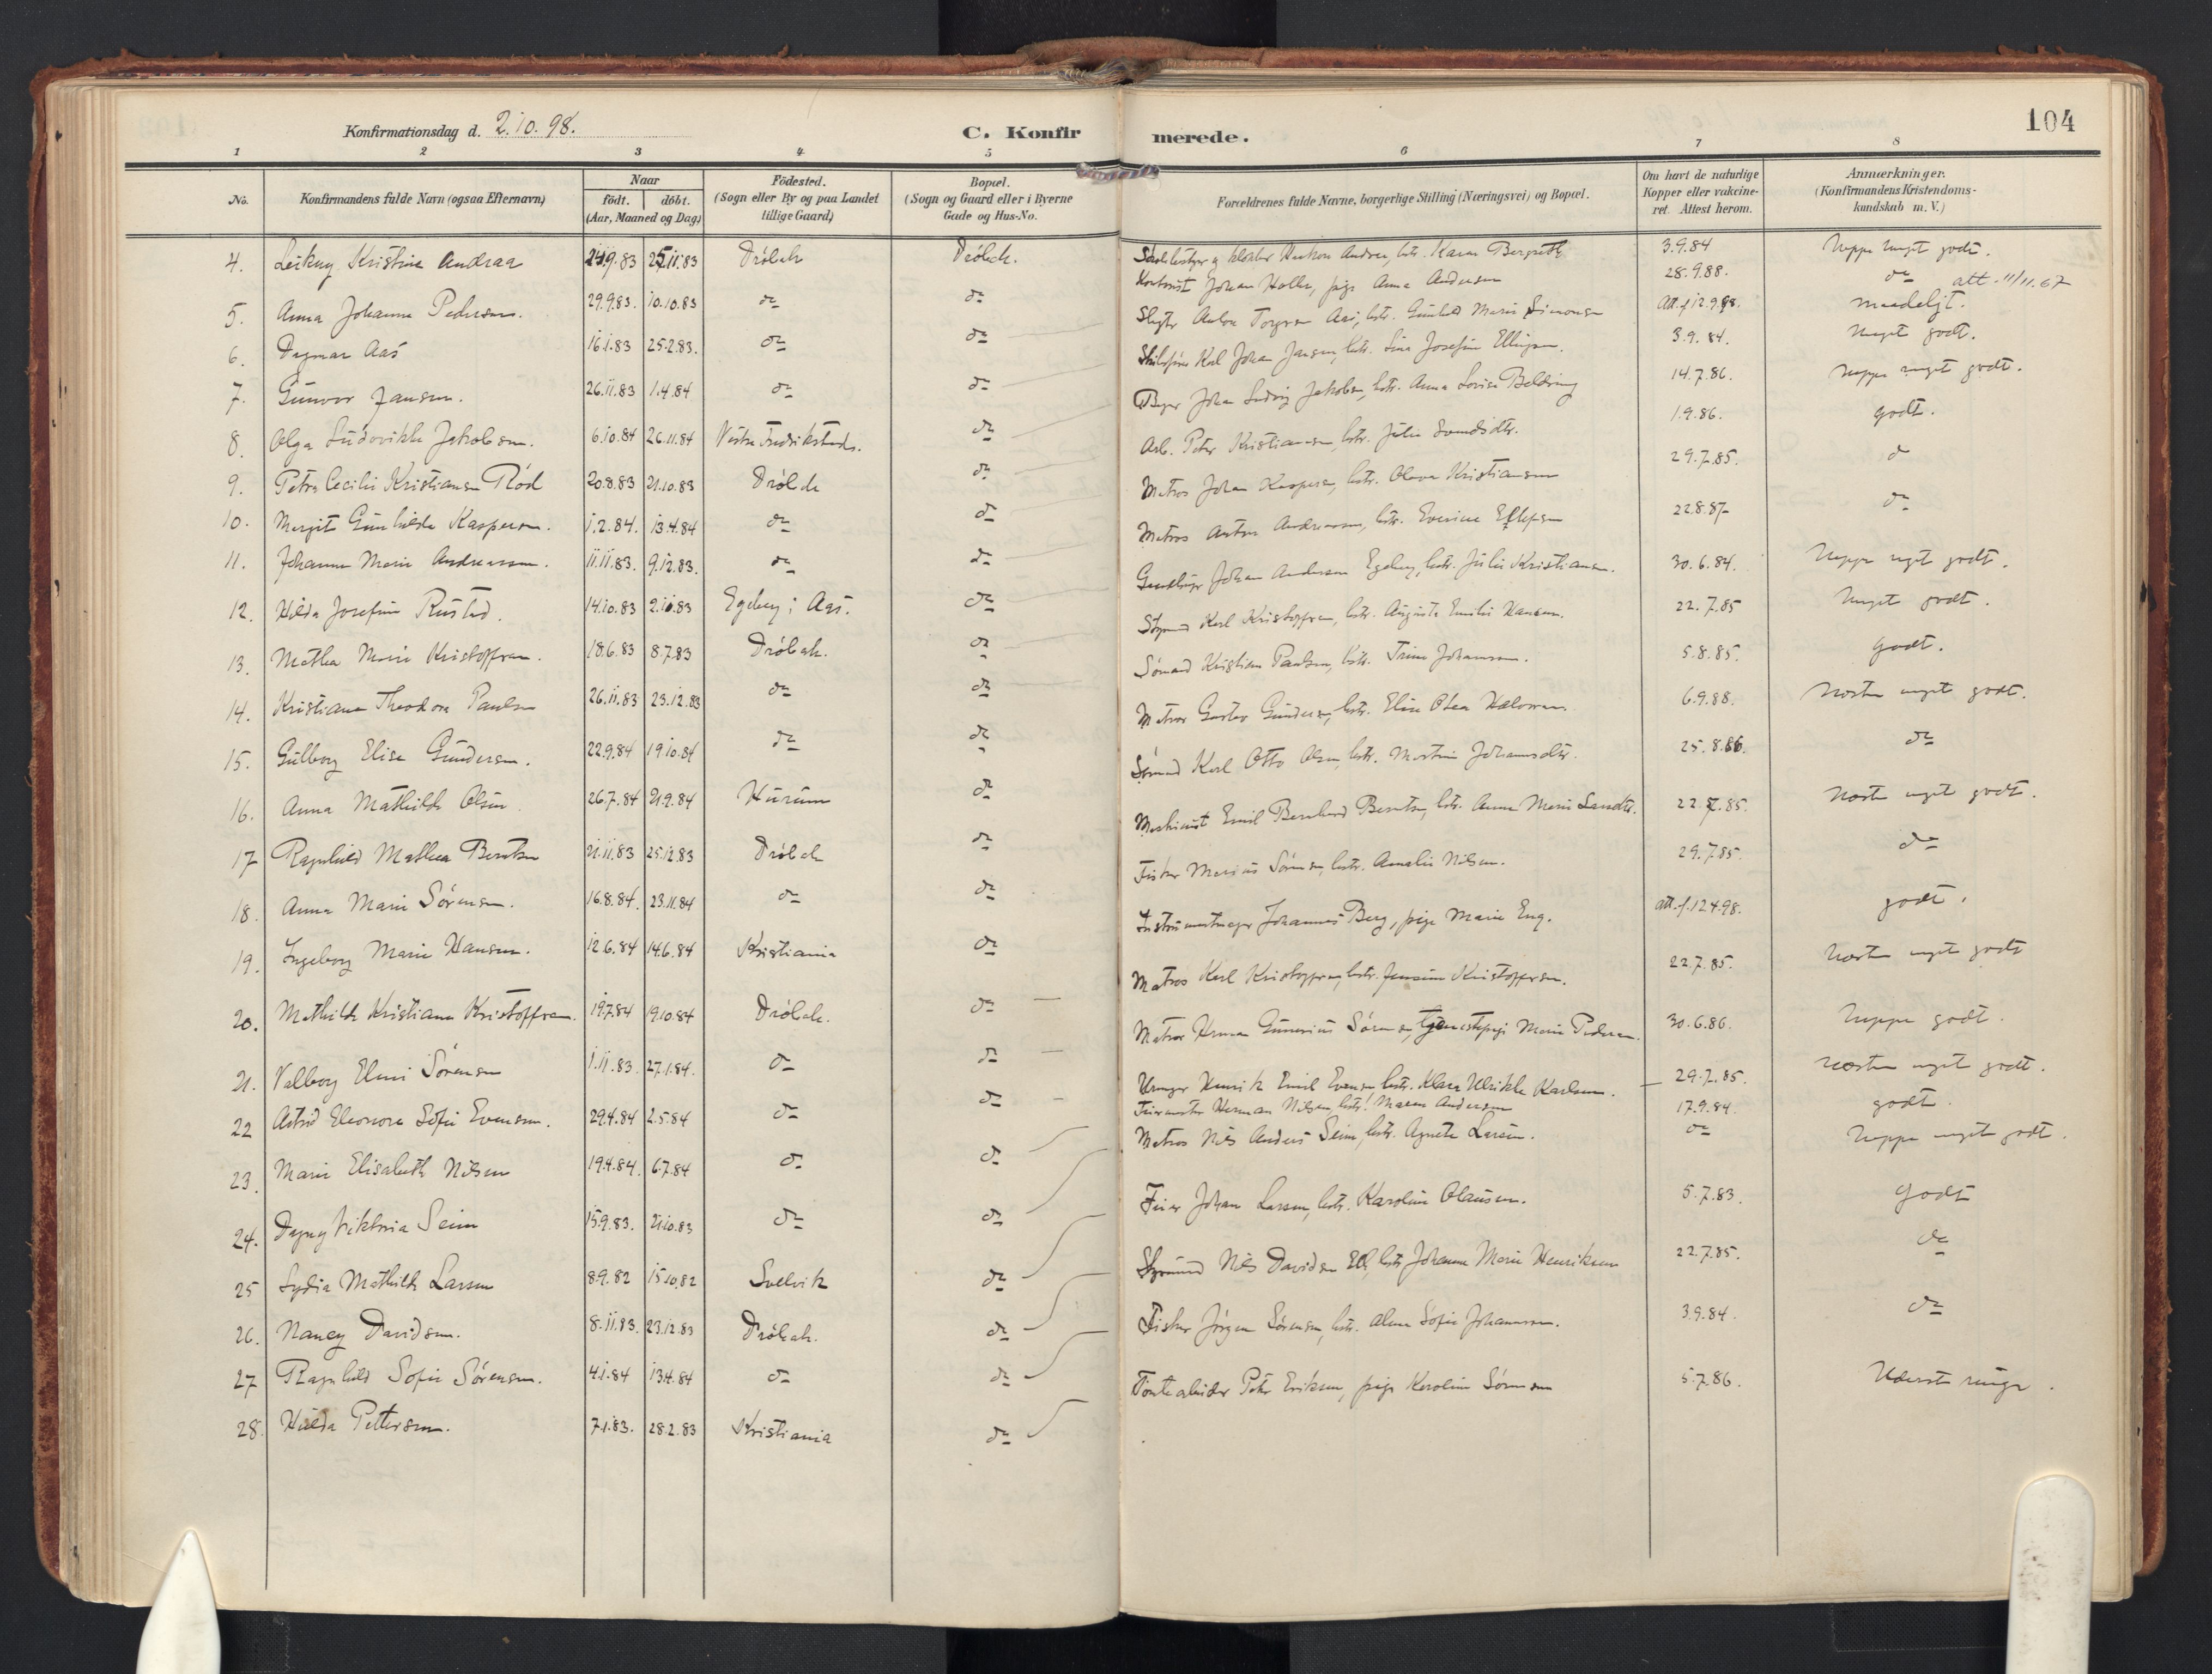 Konfirmationsdag d. 2.10.98.
C. Konfirmerede.
104
1 2 3 4 5 6 7 8
No. | Konfirmandens fulde Navn (ogsaa Efternavn) | Naar födt. | döbt. (Aar, Maaned og Dag) | Födested. (Sogn eller By og paa Landet tillige Gaard) | Bopæl. (Sogn og Gaard eller i Byerne Gade og Hus-No. | Forældrenes fulde Navne, borgerlige Stilling (Næringsvei) og Bopæl. | Om havt de naturlige Kopper eller vakcineret. Attest herom. | Anmærkninger. (Konfirmandens Kristendomskundskab m. V.)
4. Kristine Andraa 9.83 11.83 Dröbak Dröbak. Andraa, hstr. Karen Bergseth 3.9.84 Neppe meget godt.
5. Anna Johanne Pedersen. 29.9.83. 10.10.83 do do Johan Holth, pige Anna Andersen 28.9.88. do att. 11/11.67
6. Dagmar Aas 16.1.83 25.2.83. do do Anton Aas, hstr. Gunhild Marie Simonsen att. f. 12.9.98. maadeligt.
7. Gunvor Jansen. 26.11.83 1.4.84 do do Karl Johan Jansen, hstr. Lina Josefine Ellingsen. 3.9.84. meget godt.
8. Olga Ludovikke Jakobsen. 6.10.84 26.11.84 Vestre Fredrikstads. do Johan Ludvig Jakobsen, hstr. Anna Lovise 14.7.86. neppe meget godt.
9. Petra Cecilie Kristiansen Röd 20.8.83 21.10.83 Dröbak do Arb. Peter Kristiansen, hstr. Julie 1.9.86. godt.
10. Margit Gunhilde Kaspersen. 1.2.84. 13.4.84 do do Matros Johan Kaspersen, hstr. Olava Kristiansen 29.7.85. do
11. Johanne Marie Andreassen. 11.11.83. 9.12.83. do do Matros Anton Andreassen, hstr. Evensine 22.8.87 do
12. Hilda Josefine Rustad. 14.10.83 2.10.83 Egeberg i Aas. do Johan Andersen Egeberg, hstr. Julie Kristiansen. 30.6.84. Neppe meget godt.
13. Mathea Marie Kristoffersen. 18.6.83 8.7.83 Dröbak. do Karl Kristoffersen, hstr. Augusta Emilie Hansen. 22.7.85 Meget godt.
14. Kristiane Theodora Paulsen 26.11.83 23.12.83 do do Sömand Kristian Paulsen, hstr. Trine Johannesen. 5.8.85. godt.
15. Gulborg Elise Gundersen. 22.9.84 19.10.84 do do Matros Gustav Gundersen, hstr. Elise Olea 6.9.88. Næsten meget godt.
16. Anna Mathilde Olsen 26.7.84 21.9.84 Hurum do Sömand Karl Otto Olsen, hstr. Martine Johannesdtr. 25.8.86. do
17 Ragnhild Mathea Berntsen 21.11.83 25.12.83 Dröbak do Maskinist Emil Bernhard Berntsen, hstr. Anna Marie 22.7.85. Næsten meget godt.
18. Anna Marie Sörensen. 16.8.84. 23.11.84 do do Fisker Marius Sörensen, hstr. Amalie Nilsen. 29.7.85. do
19. Ingeborg Marie Hansen. 12.6.84 14.6.84 Kristiania do Instrumentmager Johannes Berg, pige Marie Eng. att. f. 12.4.98. godt.
20. Mathilde Kristiane Kristoffersen. 19.7.84 19.10.84 Dröbak. do Matros Karl Kristoffersen, hstr. Jensine Kristoffersen. 22.7.85. Næsten meget godt
21. Valborg Elmi Sörensen 1.11.83. 27.1.84. do do Matros Herman Gunerius Sörensen, tjenestepige Marie Pedersen. 30.6.86. Neppe godt.
22 Astrid Eleonora Sofie Evensen. 29.4.84 2.5.84 do do Urmager Henrik Emil Evensen hstr. Klara Ulrikke Karlsen. 29.7.85. næsten meget godt.
23. Marie Elisabeth Nilsen 19.4.84. 6.7.84 do do Herman Nilsen, hstr. Maren Andersen 17.9.84. godt.
24. Dagny Viktoria Seim 15.9.83. 21.10.83 do do Matros Nils Anders Seim, hstr. Agnete Larsen. do Neppe meget godt.
25 Lydia Mathilde Larsen 8.9.82 15.10.82 Svelvik do Feier Johan Larsen, hstr. Karoline Olausen. 5.7.83. Godt
26. Nancy Davidsen. 8.11.83. 23.12.83 Dröbak. do Styrmand Nils Davidsen hstr. Johanne Marie Henriksen 22.7.85. do
27 Ragnhild Sofie Sörensen. 4.1.84 13.4.84 do do Fisker Jörgen Sörensen, hstr. Alma Sofie Johannesen. 3.9.84. do
28. Hilda Pettersen. 7.1.83. 28.2.83 Kristiania do Peter Eriksen, pige Karoline Sörensen 5.7.86. Yderst ringe.